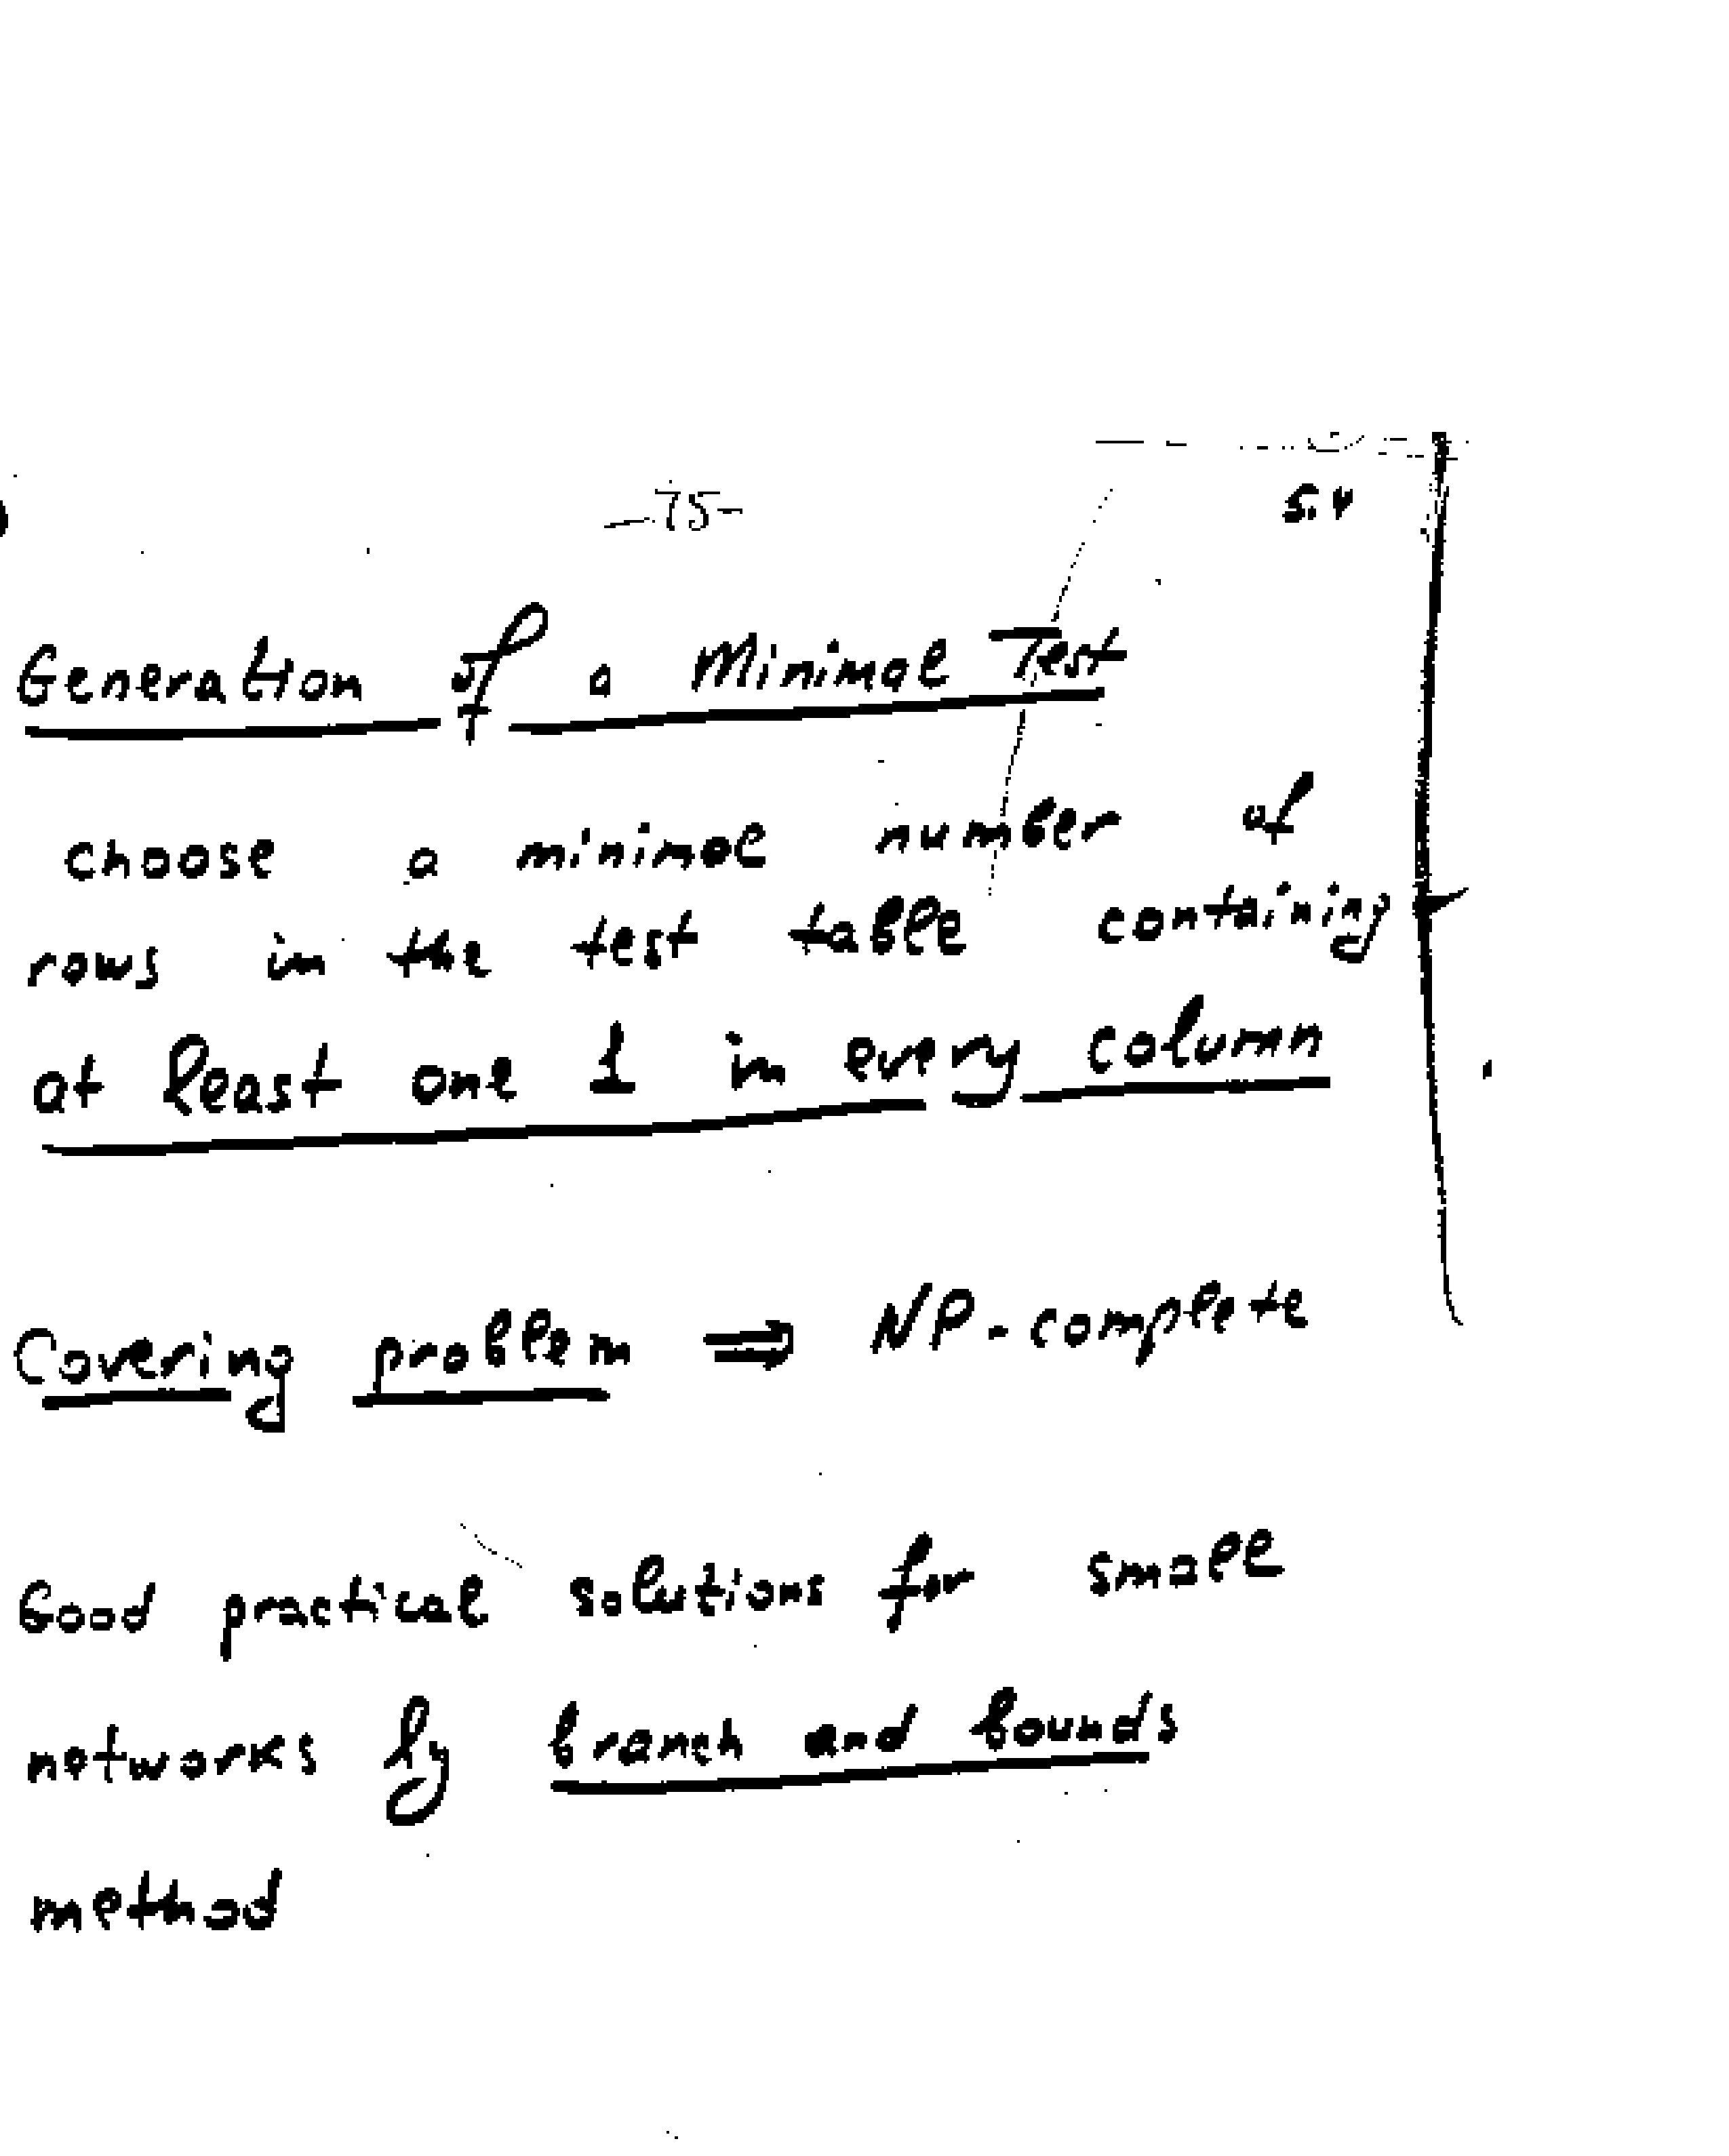 -75-
Generation of a Minimal Test
choose a minimal number of
rows in the test table containing
at least one 1 in every column
Covering problem ⇒ NP-complete
Good practical solutions for small
networks by branch and bounds
method